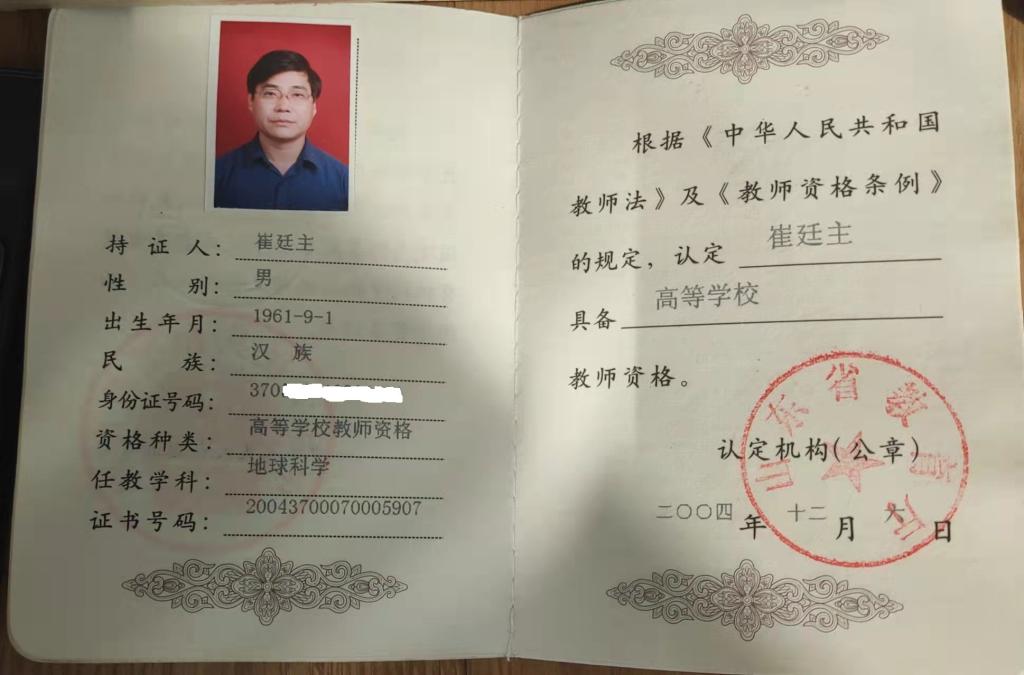 持证人：崔廷主
性别：男
出生年月：1961-9-1
民族：汉族
身份证号码：370
资格种类：高等学校教师资格
任教学科：地球科学
证书号码：20043700070005907
根据《中华人民共和国
教师法》及《教师资格条例》
的规定，认定 崔廷主
具备 高等学校
教师资格。
认定机构（公章）
二〇〇四年十二月六日
山东省教育厅